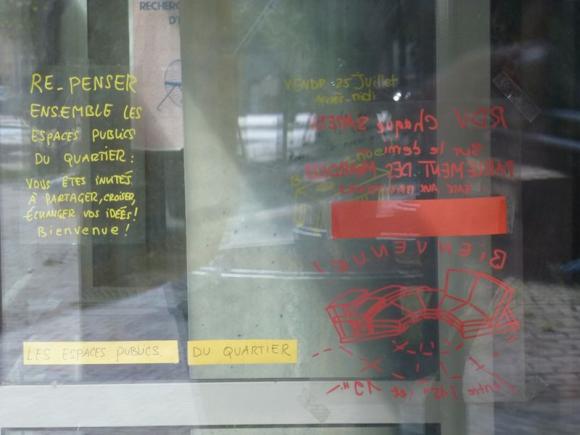 RECHERC
D'
RE-PENSER
ENSEMBLE LES
ESPACES PUBLICS
DU QUARTIER :
VOUS ÊTES INVITÉS
À PARTAGER, CROISER,
ÉCHANGER VOS IDÉES !
Bienvenue !
VENDR. 25 Juillet
Après-midi
RDV chaque SAMEDI
Sur le demi
PARLEMENT DES
BIENVENUE !
LES ESPACES PUBLICS
DU QUARTIER